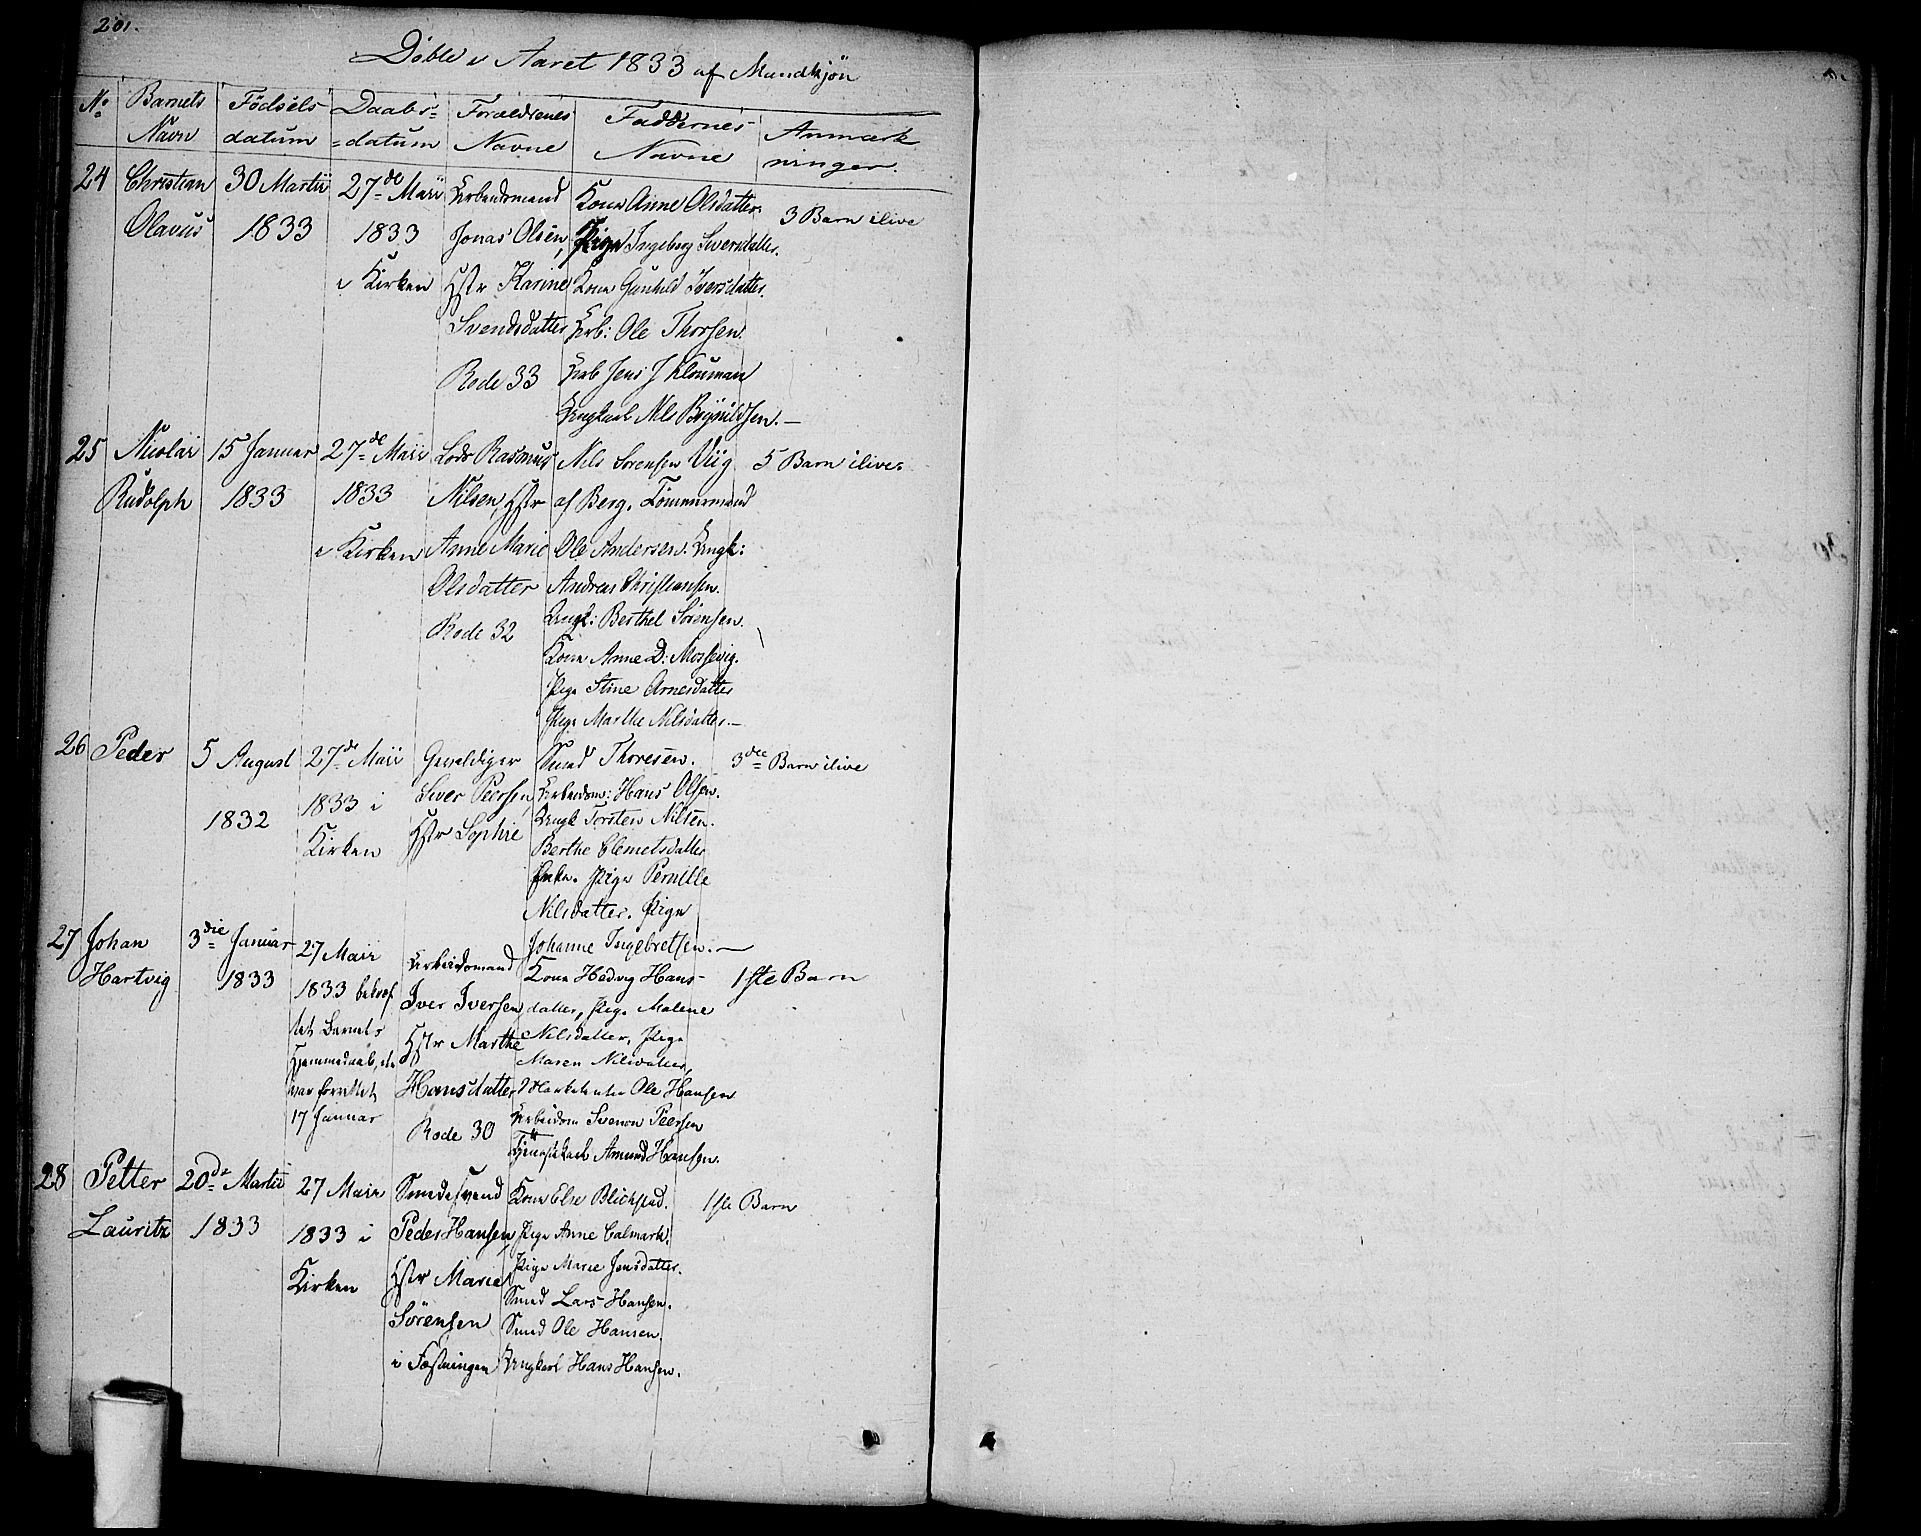 201.
Døbte i Aaret 1833 af Mandkjøn
No
Barnets Navn
Fødsels datum
Daabs= =datum
Forældrenes Navne
Faddernes Navne
Anmærkninger.
24
Christian
Olavus
30 Martii
1833
27de Maii
1833
i Kirken
Arbeidsmand
Jonas Olsen,
Hstr Karine
Svendsdatter
Rode 33
Kone Anne Olsdatter.
Pige Ingeborg Sversdatter.
Kone Gunhild Iversdatter.
Arb: Ole Thorsen.
Arb Jens J Klouman
Ungkarl Nils Brynildsen.—
3 Barn ilive
25
Nicolai
Rudolph
15 Januar
1833
27de Maii
1833
i Kirken
Lods Rasmus
Nilsen, Hstr
Anne Marie
Olsdatter
Rode 32
Nils Sørensen Viig
af Berg. Tømmermand
Ole Andersen. Ungk:
Andreas Christiansen.
Ungk: Berthel Sørensen.
Kone Anne D: Mossevig.
Pige Stine Arnesdatter
Pige Marthe Nilsdatter.—
5 Barn ilive.
26
Peder
5 August
1832
27de Maii
1833 i
Kirken
Gevaldiger
Siver Peersen,
Hstr Sophie
Smed Thoresen.
Arbeidsm: Hans Olsen.
Ungk Torsten Nilsen.
Berthe Clemetsdatter
Enke. Pige Pernille
Nilsdatter. Pige
Johanne Ingebretsen.—
3die Barn ilive
27
Johan
Hartvig
3die Januar
1833
27 Maii
1833 bekræf
tet Barnets
Hjemmedaab, der
var forrettet
17 Januar
Arbeidsmand
Iver Iversen
Hstr Marthe
Hansdatter
Rode 30
Kone Hedvig Hans-
datter, Pige Malene
Nilsdatter, Pige
Maren Nilsdatter,
Marketenter Ole Hansen
Arbeidsm Svenom Peersen
Tjenestkarl Amund Hansen.
1ste Barn
28
Petter
Lauritz
20de Martii
1833
27 Maii
1833 i
Kirken
Smedesvend
Peder Hansen,
Hstr Marie
Sørensen
i Fæstningen
Kone Else Blichfed.
Pige Anne Calmark.
Pige Marie Jensdatter.
Smed Lars Hansen.
Smed Ole Hansen.
Ungkarl Hans Hansen.
1ste Barn